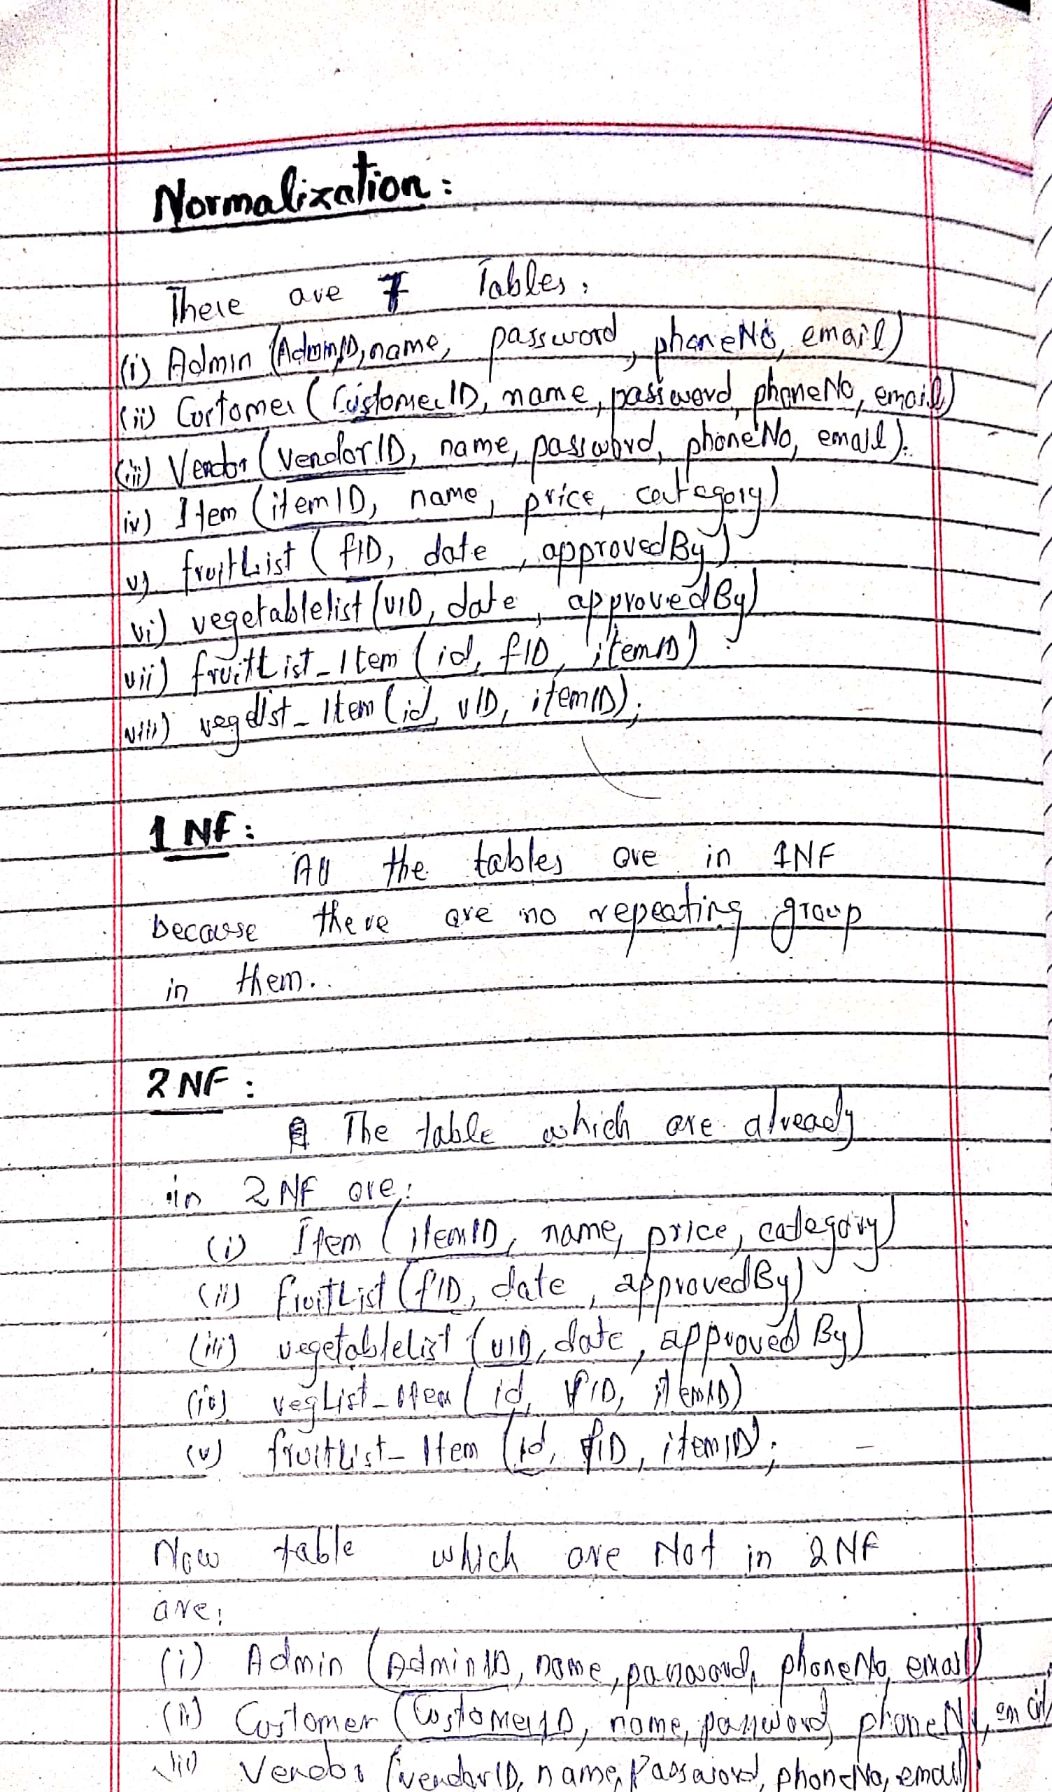 Normalization:
There are 7 Tables:
(i) Admin (AdminID, name, password, phoneNo, email)
(ii) Customer (CustomerID, name, password, phoneNo, email)
(iii) Vendor (VendorID, name, password, phoneNo, email).
iv) Item (itemID, name, price, category)
v) fruitList (fID, date, approvedBy)
vi) vegetablelist (vID, date, approvedBy)
vii) fruitList_Item (id, fID, itemID)
viii) veglist_Item (id, vID, itemID);
1 NF:
All the tables are in 1NF
because there are no repeating group
in them..
2 NF:
The table which are already
in 2 NF are:
(i) Item (itemID, name, price, category)
(ii) FruitList (fID, date, approvedBy)
(iii) vegetablelist (vID, date, approved By)
(iv) vegList_Item (id, vID, itemID)
(v) fruitList_Item (id, fID, itemID);
Now table which are Not in 2NF
are;
(i) Admin (AdminID, name, password, phoneNo, email)
(ii) Customer (CustomerID, name, password, phoneN, email
iii) Vendor (vendorID, name, Password, phoneNo, email)